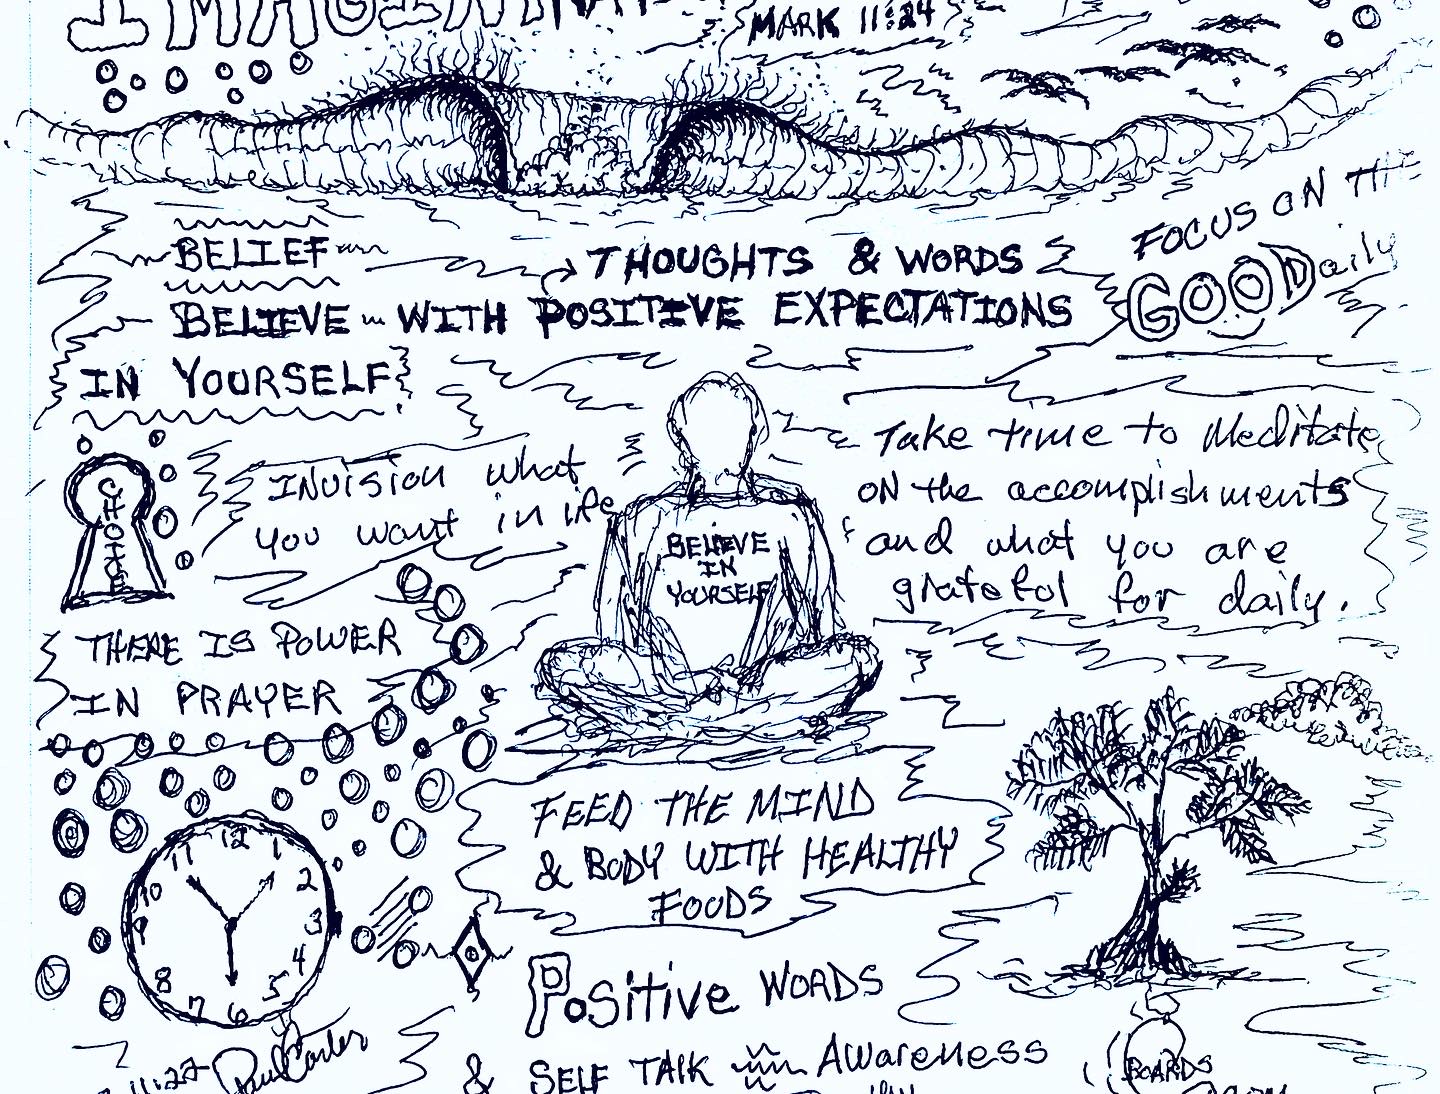 MARK 11:24
FOCUS ON THE
GOOD aily
BELIEF
THOUGHTS & WORDS
BELIEVE WITH POSITIVE EXPECTATIONS
IN YOURSELF
CHOICE
INVISION what
you want in life
BELIEVE
IN
YOURSELF
Take time to Meditate
ON the accomplishments
and what you are
grateful for daily.
THERE IS POWER
IN PRAYER
12
1
2
3
4
5
6
7
8
9
10
11
FEED THE MIND
& BODY WITH HEALTHY
FOODS
Positive WORDS
& SELF TALK AWareness
11:22
Paul Carter
BOARDS